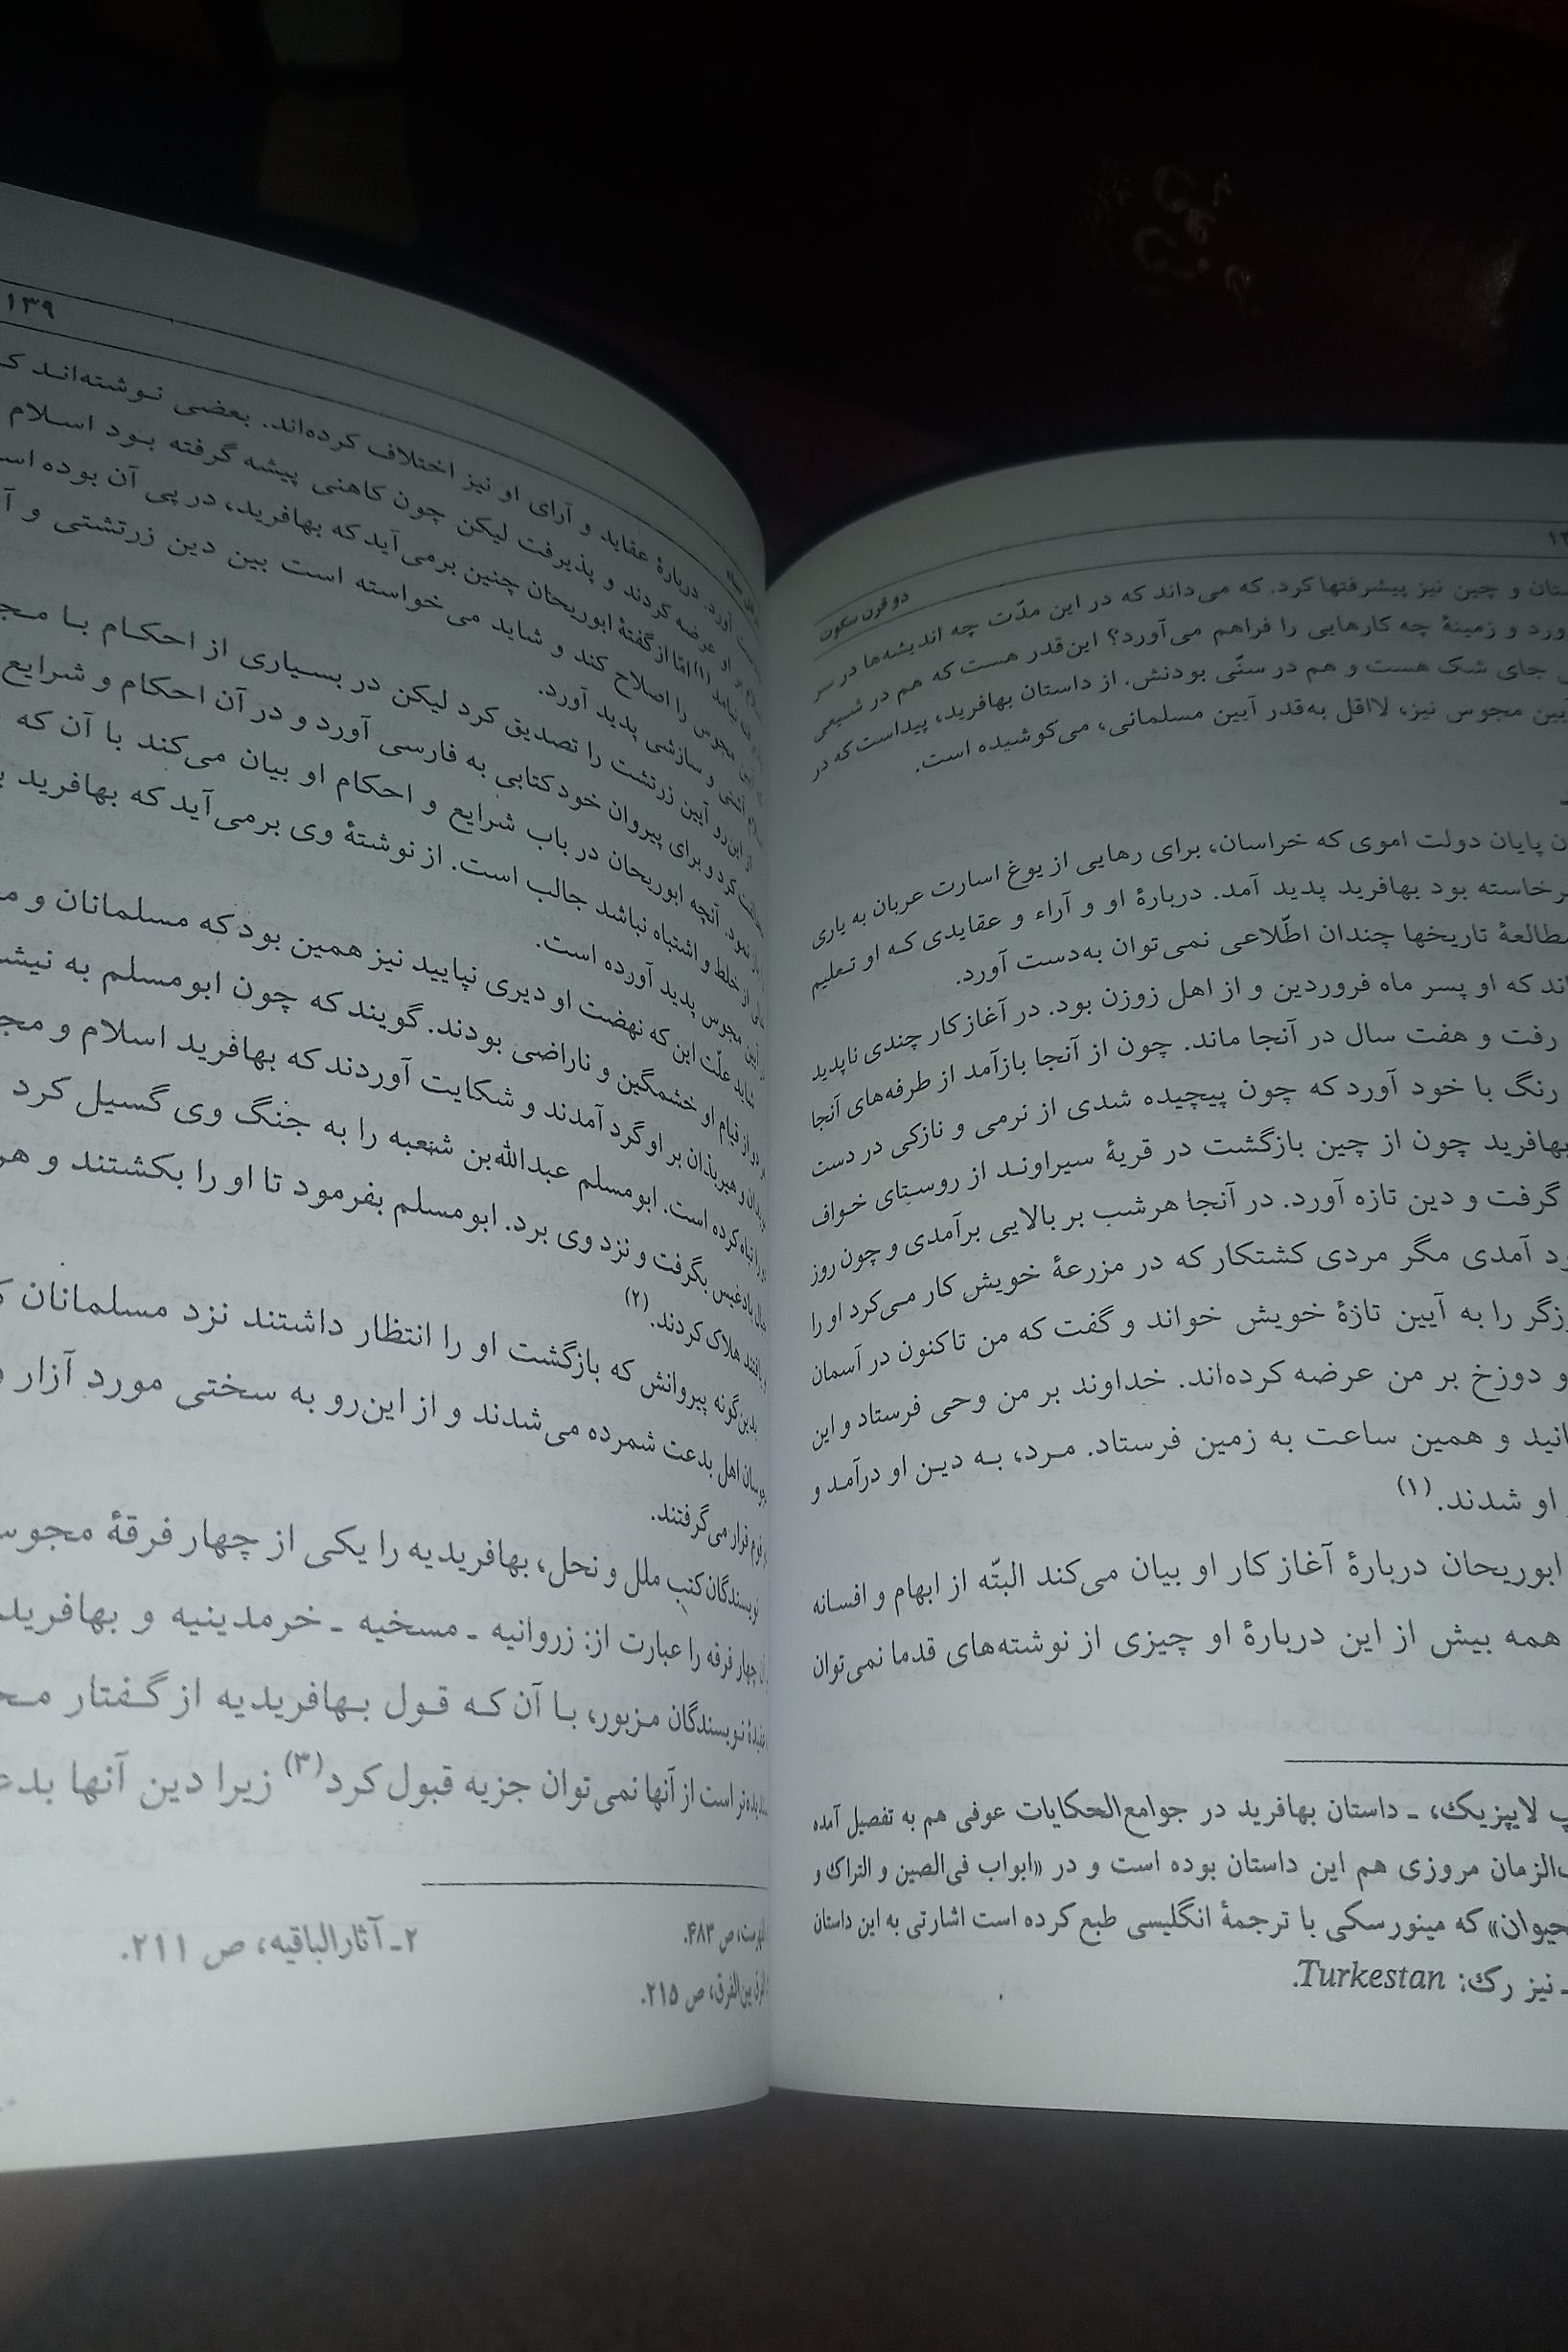 دو قرن سکوت
ستان و چین نیز پیشرفتها کرد. که می‌داند که در این مدّت چه اندیشه‌ها در سر
ورد و زمینهٔ چه کارهایی را فراهم می‌آورد؟ این‌قدر هست که هم در شیعی
جای شک هست و هم در سنّی بودنش. از داستان بهافرید، پیداست که در
یین مجوس نیز، لااقل به‌قدر آیین مسلمانی، می‌کوشیده است.
ن پایان دولت اموی که خراسان، برای رهایی از یوغ اسارت عربان به یاری
رخاسته بود بهافرید پدید آمد. دربارهٔ او و آراء و عقایدی که او تعلیم
مطالعهٔ تاریخها چندان اطّلاعی نمی‌توان به‌دست آورد.
اند که او پسر ماه فروردین و از اهل زوزن بود. در آغاز کار چندی ناپدید
رفت و هفت سال در آنجا ماند. چون از آنجا بازآمد از طرفه‌های آنجا
رنگ با خود آورد که چون پیچیده شدی از نرمی و نازکی در دست
بهافرید چون از چین بازگشت در قریهٔ سیراوند از روستای خواف
گرفت و دین تازه آورد. در آنجا هرشب بر بالایی برآمدی و چون روز
د آمدی مگر مردی کشتکار که در مزرعهٔ خویش کار می‌کرد او را
زگر را به آیین تازهٔ خویش خواند و گفت که من تاکنون در آسمان
و دوزخ بر من عرضه کرده‌اند. خداوند بر من وحی فرستاد و این
انید و همین ساعت به زمین فرستاد. مرد، به دین او درآمد و
او شدند.(۱)
ابوریحان دربارهٔ آغاز کار او بیان می‌کند البتّه از ابهام و افسانه
همه بیش از این دربارهٔ او چیزی از نوشته‌های قدما نمی‌توان
پ لایپزیک، ـ داستان بهافرید در جوامع‌الحکایات عوفی هم به تفصیل آمده
ف‌الزمان مروزی هم این داستان بوده است و در «ابواب فی‌الصین و التراک و
حیوان» که مینورسکی با ترجمهٔ انگلیسی طبع کرده است اشارتی به این داستان
ـ نیز رک: Turkestan.
۱۳۹
آورد. دربارهٔ عقاید و آرای او نیز اختلاف کرده‌اند. بعضی نوشته‌اند کـ
بر او عرضه کردند و پذیرفت لیکن چون کاهنی پیشه گرفته بود اسلام
نیامد(۱) امّا از گفتهٔ ابوریحان چنین برمی‌آید که بهافرید، در پی آن بوده اسـ
مجوس را اصلاح کند و شاید می‌خواسته است بین دین زرتشتی و آ
و سازشی پدید آورد.
از این‌رو آیین زرتشت را تصدیق کرد لیکن در بسیاری از احکام با مجـ
کرد و برای پیروان خود کتابی به فارسی آورد و در آن احکام و شرایع
نمود. آنچه ابوریحان در باب شرایع و احکام او بیان می‌کند با آن که
از خلط و اشتباه نباشد جالب است. از نوشتهٔ وی برمی‌آید که بهافرید
آیین مجوس پدید آورده است.
شاید علّت این که نهضت او دیری نپایید نیز همین بود که مسلمانان و مـ
از قیام او خشمگین و ناراضی بودند. گویند که چون ابومسلم به نیشـ
و هیربذان بر او گرد آمدند و شکایت آوردند که بهافرید اسلام و مجـ
را تباه کرده است. ابومسلم عبدالله‌بن شعبه را به جنگ وی گسیل کرد
بادغیس بگرفت و نزد وی برد. ابومسلم بفرمود تا او را بکشتند و هر
یافتند هلاک کردند.(۲)
بدین‌گونه پیروانش که بازگشت او را انتظار داشتند نزد مسلمانان
اهل بدعت شمرده می‌شدند و از این‌رو به سختی مورد آزار
قرار می‌گرفتند.
نویسندگان کتب ملل و نحل، بهافریدیه را یکی از چهار فرقهٔ مجوس
چهار فرقه را عبارت از: زروانیه ـ مسخیه ـ خرمدینیه و بهافریدیـ
نویسندگان مزبور، با آن که قول بهافریدیه از گفتار مجـ
است از آنها نمی‌توان جزیه قبول کرد(۳) زیرا دین آنها بدعـ
ص ۴۸۳.
۲ـ آثارالباقیه، ص ۲۱۱.
بین‌الفرق، ص ۲۱۵.